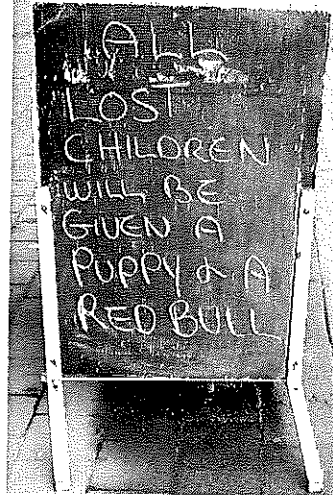 ALL
LOST
CHILDREN
WILL BE
GIVEN A
PUPPY & A
RED BULL